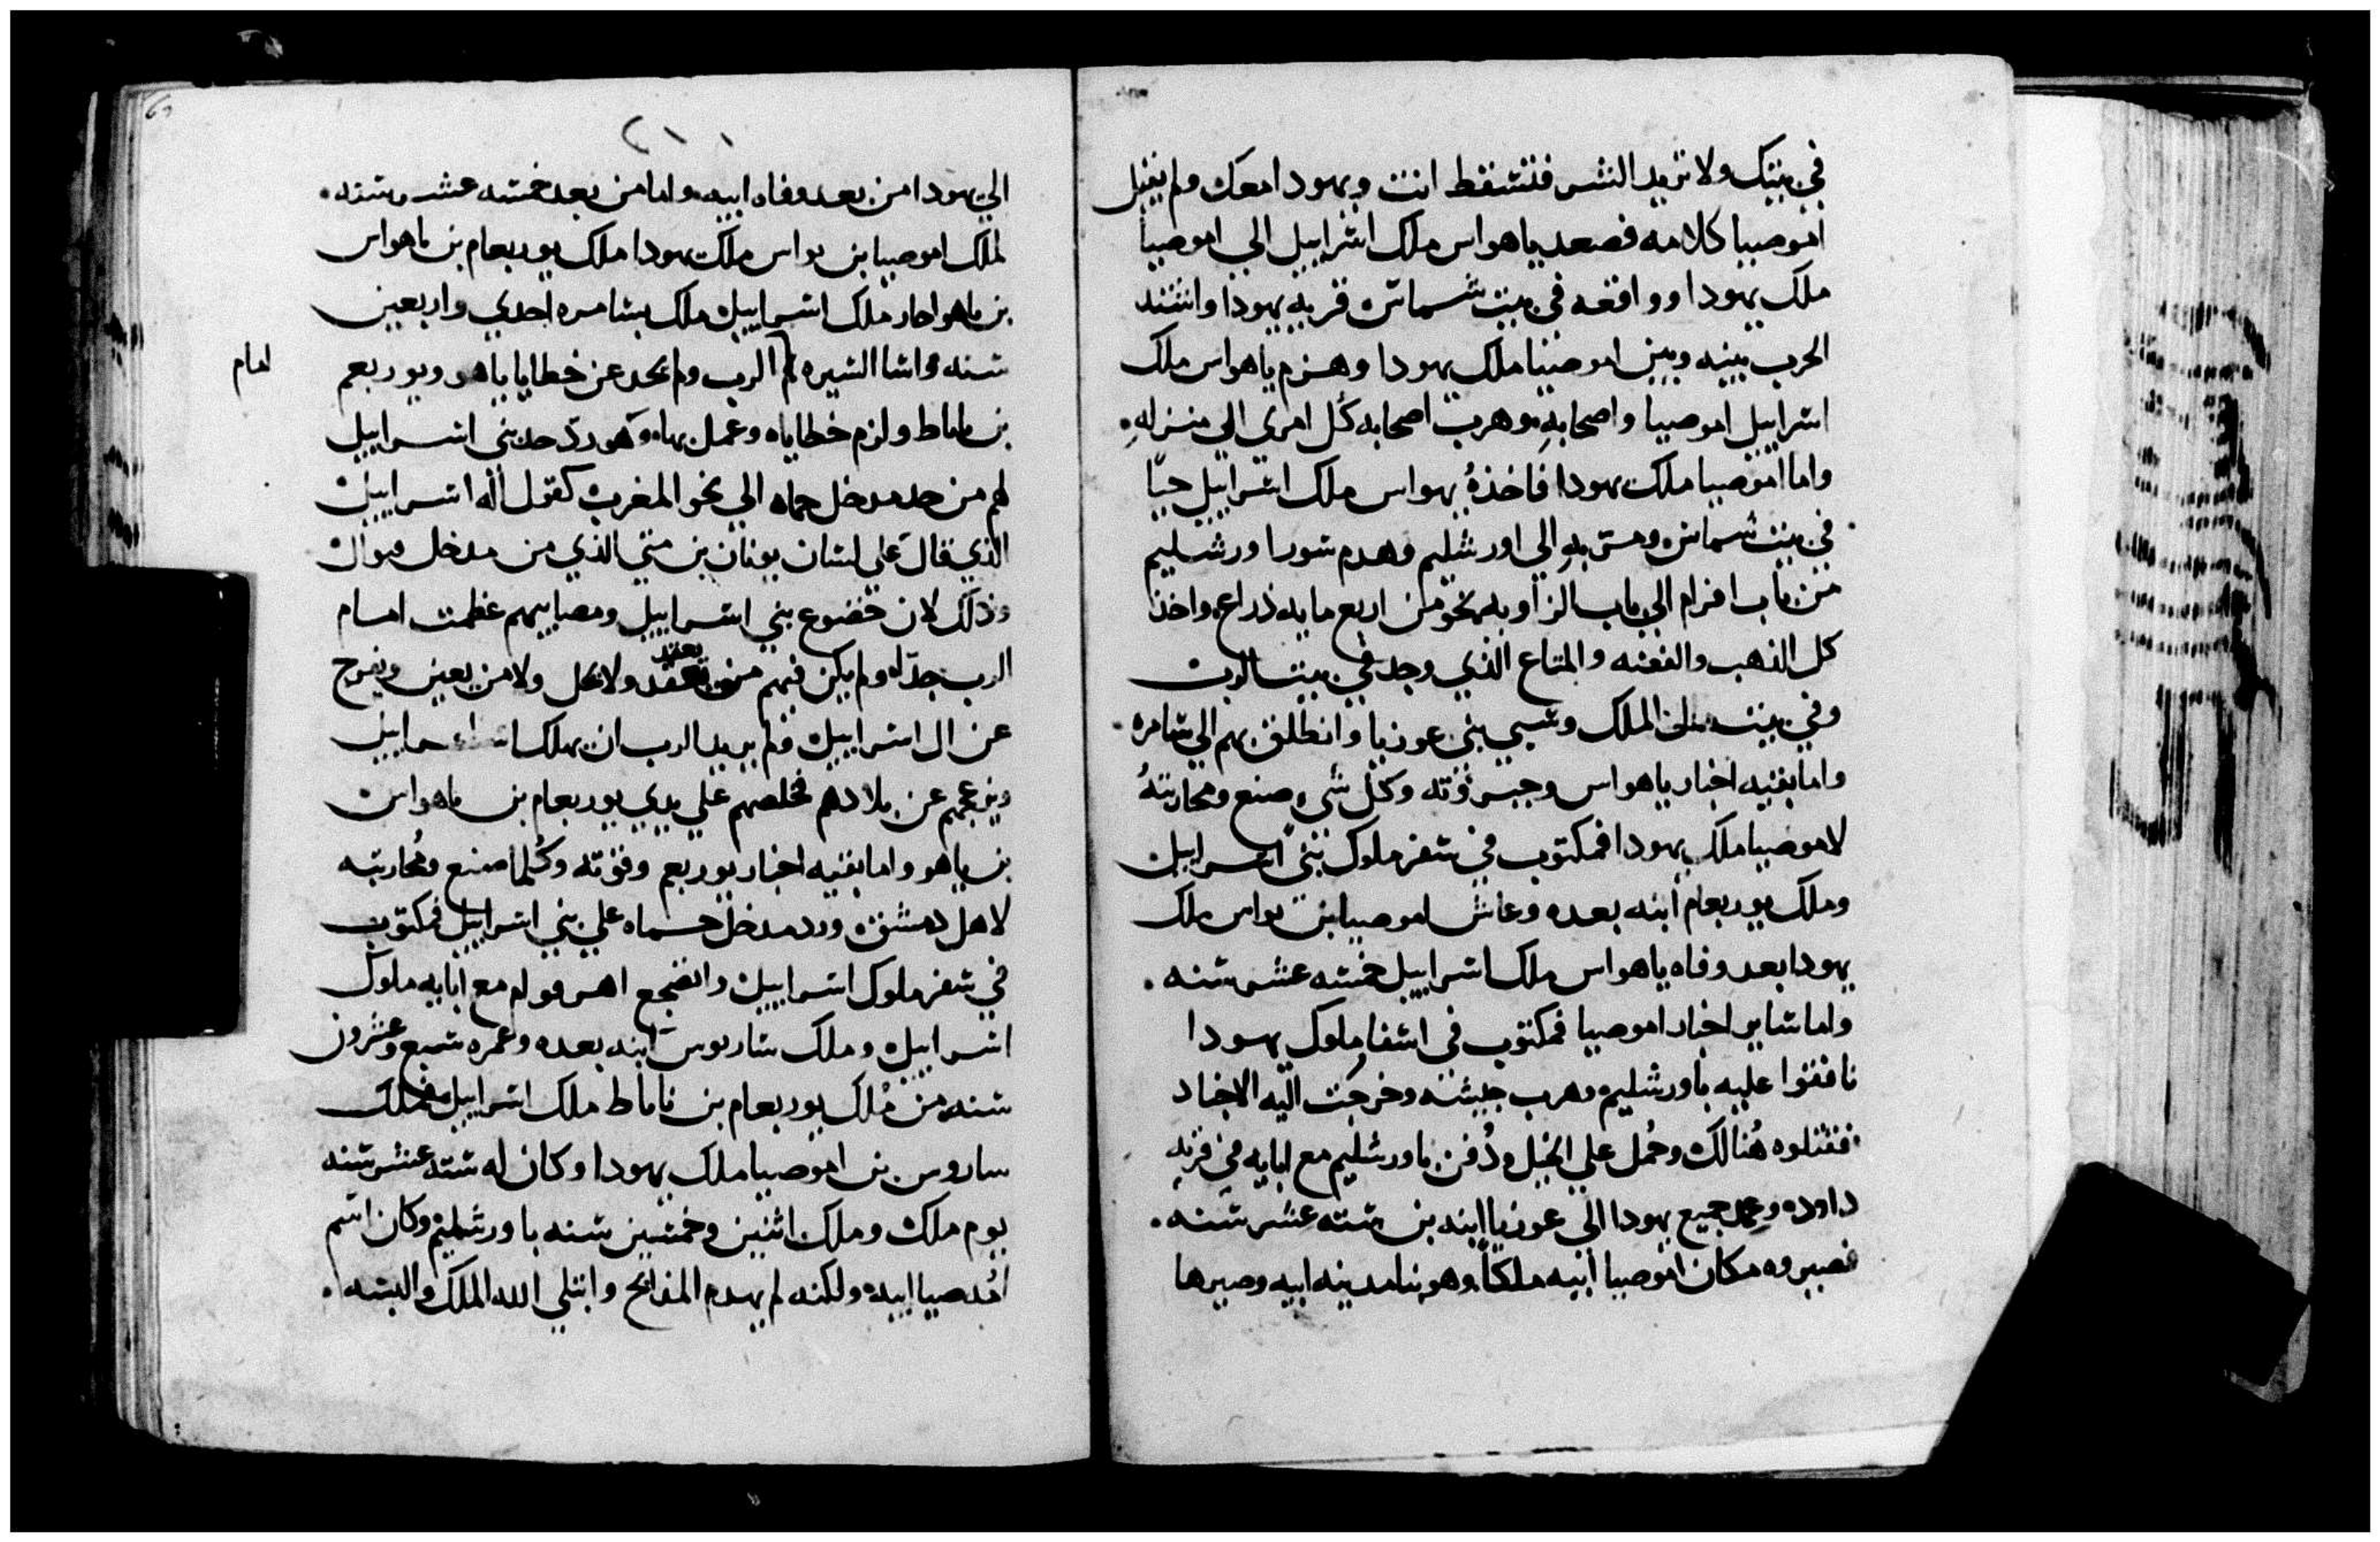 في بيتك ولا تريد الشر فتسقط انت ويهودا معك ولم يقبل
اموصيا كلامه فصعد ياهواس ملك اسراييل الي اموصيا
ملك يهودا وواقعه في بيت شماس قريه يهودا واشتد
الحرب بينه وبين اموصيا ملك يهودا وهزم ياهواس ملك
اسراييل اموصيا واصحابه وهرب اصحابه كل امري الي منزله
واما اموصيا ملك يهودا فاخذه يهواس ملك اسراييل حيا
في بيت شماس ومر به الي اورشليم وهدم سور اورشليم
من باب افرام الي باب الزاويه نحو من اربع مايه ذراع واخذ
كل الذهب والفضه والمتاع الذي وجد في بيت الرب
وفي بيت الملك وسبي بني عوزيا وانطلق بهم الي سامره
واما بقيه اخبار ياهواس وجبروته وكل شي صنع ومحاربته
لاموصيا ملك يهودا فمكتوب في سفر ملوك بني اسراييل
وملك يوربعام ابنه بعده وعاش اموصيا بن يواس ملك
يهودا بعد وفاه ياهواس ملك اسراييل خمسه عشر سنه
واما ساير اخبار اموصيا فمكتوب في اسفار ملوك يهودا
نافقوا عليه باورشليم وهرب جيشه وخرجت اليه الاجناد
فقتلوه هنالك وحمل علي الخيل ودفن باورشليم مع ابايه في قريه
داود وعمد جميع يهودا الي عوزيا ابنه بن سته عشر سنه
فصيروه مكان اموصيا ابيه ملكا وهو بنا مدينه ابيه وصيرها
الي يهودا من بعد وفاه ابيه واما من بعد خمسه عشر سنه
لملك اموصيا بن يواس ملك يهودا ملك يوربعام بن ياهواس
بن ياهواحاز ملك اسراييل ملك بسامره احدي واربعين
سنه واسا السيره امام الرب ولم يحد عن خطايا ياهو ويوربعم
بن ناباط ولزم خطاياه وعمل بها وهو رد حد بني اسراييل
لهم من حد مدخل حماه الي نحو المغرب كقول اله اسراييل
الذي قال علي لسان يونان بن متي الذي من مدخل
وذلك لان خضوع بني اسراييل ومصايبهم عظمت امام
الرب جدا ولم يكن فيهم من يعقد ولا يحل ولا من يعين ويفرج
عن ال اسراييل ولم يريد الرب ان يهلك اسراييل
ويزعجهم عن بلادهم فخلصهم علي يدي يوربعام بن ياهواس
بن ياهو واما بقيه اخبار يوربعم وقوته وكلما صنع ومحاربته
لاهل دمشق ورد مدخل حماه علي بني اسراييل فمكتوب
في سفر ملوك اسراييل واضجع مع ابايه ملوك
اسراييل وملك ساريوس ابنه بعده وعمره سبع وعشرون
سنه من ملك يوربعام بن ناباط ملك اسراييل ملك
ساروس بن اموصيا ملك يهودا وكان له سته عشر سنه
يوم ملك وملك اثنين وخمسين سنه باورشليم وكان اسم
ابيه ولكنه لم يهدم المذابح وابتلي الله الملك والبسه